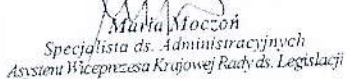 Marta Moczoń
Specjalista ds. Administracyjnych
Asystent Wiceprezesa Krajowej Rady ds. Legislacji